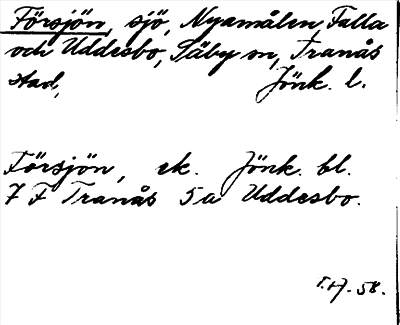 Försjön, sjö, Nyamålen, Falla
och Uddesbo, Säby sn, Tranås
stad, Jönk. l.
Försjön, ek. Jönk. bl.
7 F Tranås 5a Uddesbo.
58.